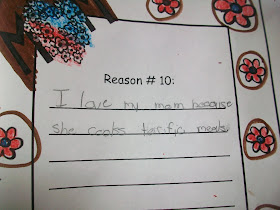 Reason # 10:
I love my mom because
she cooks terific meals